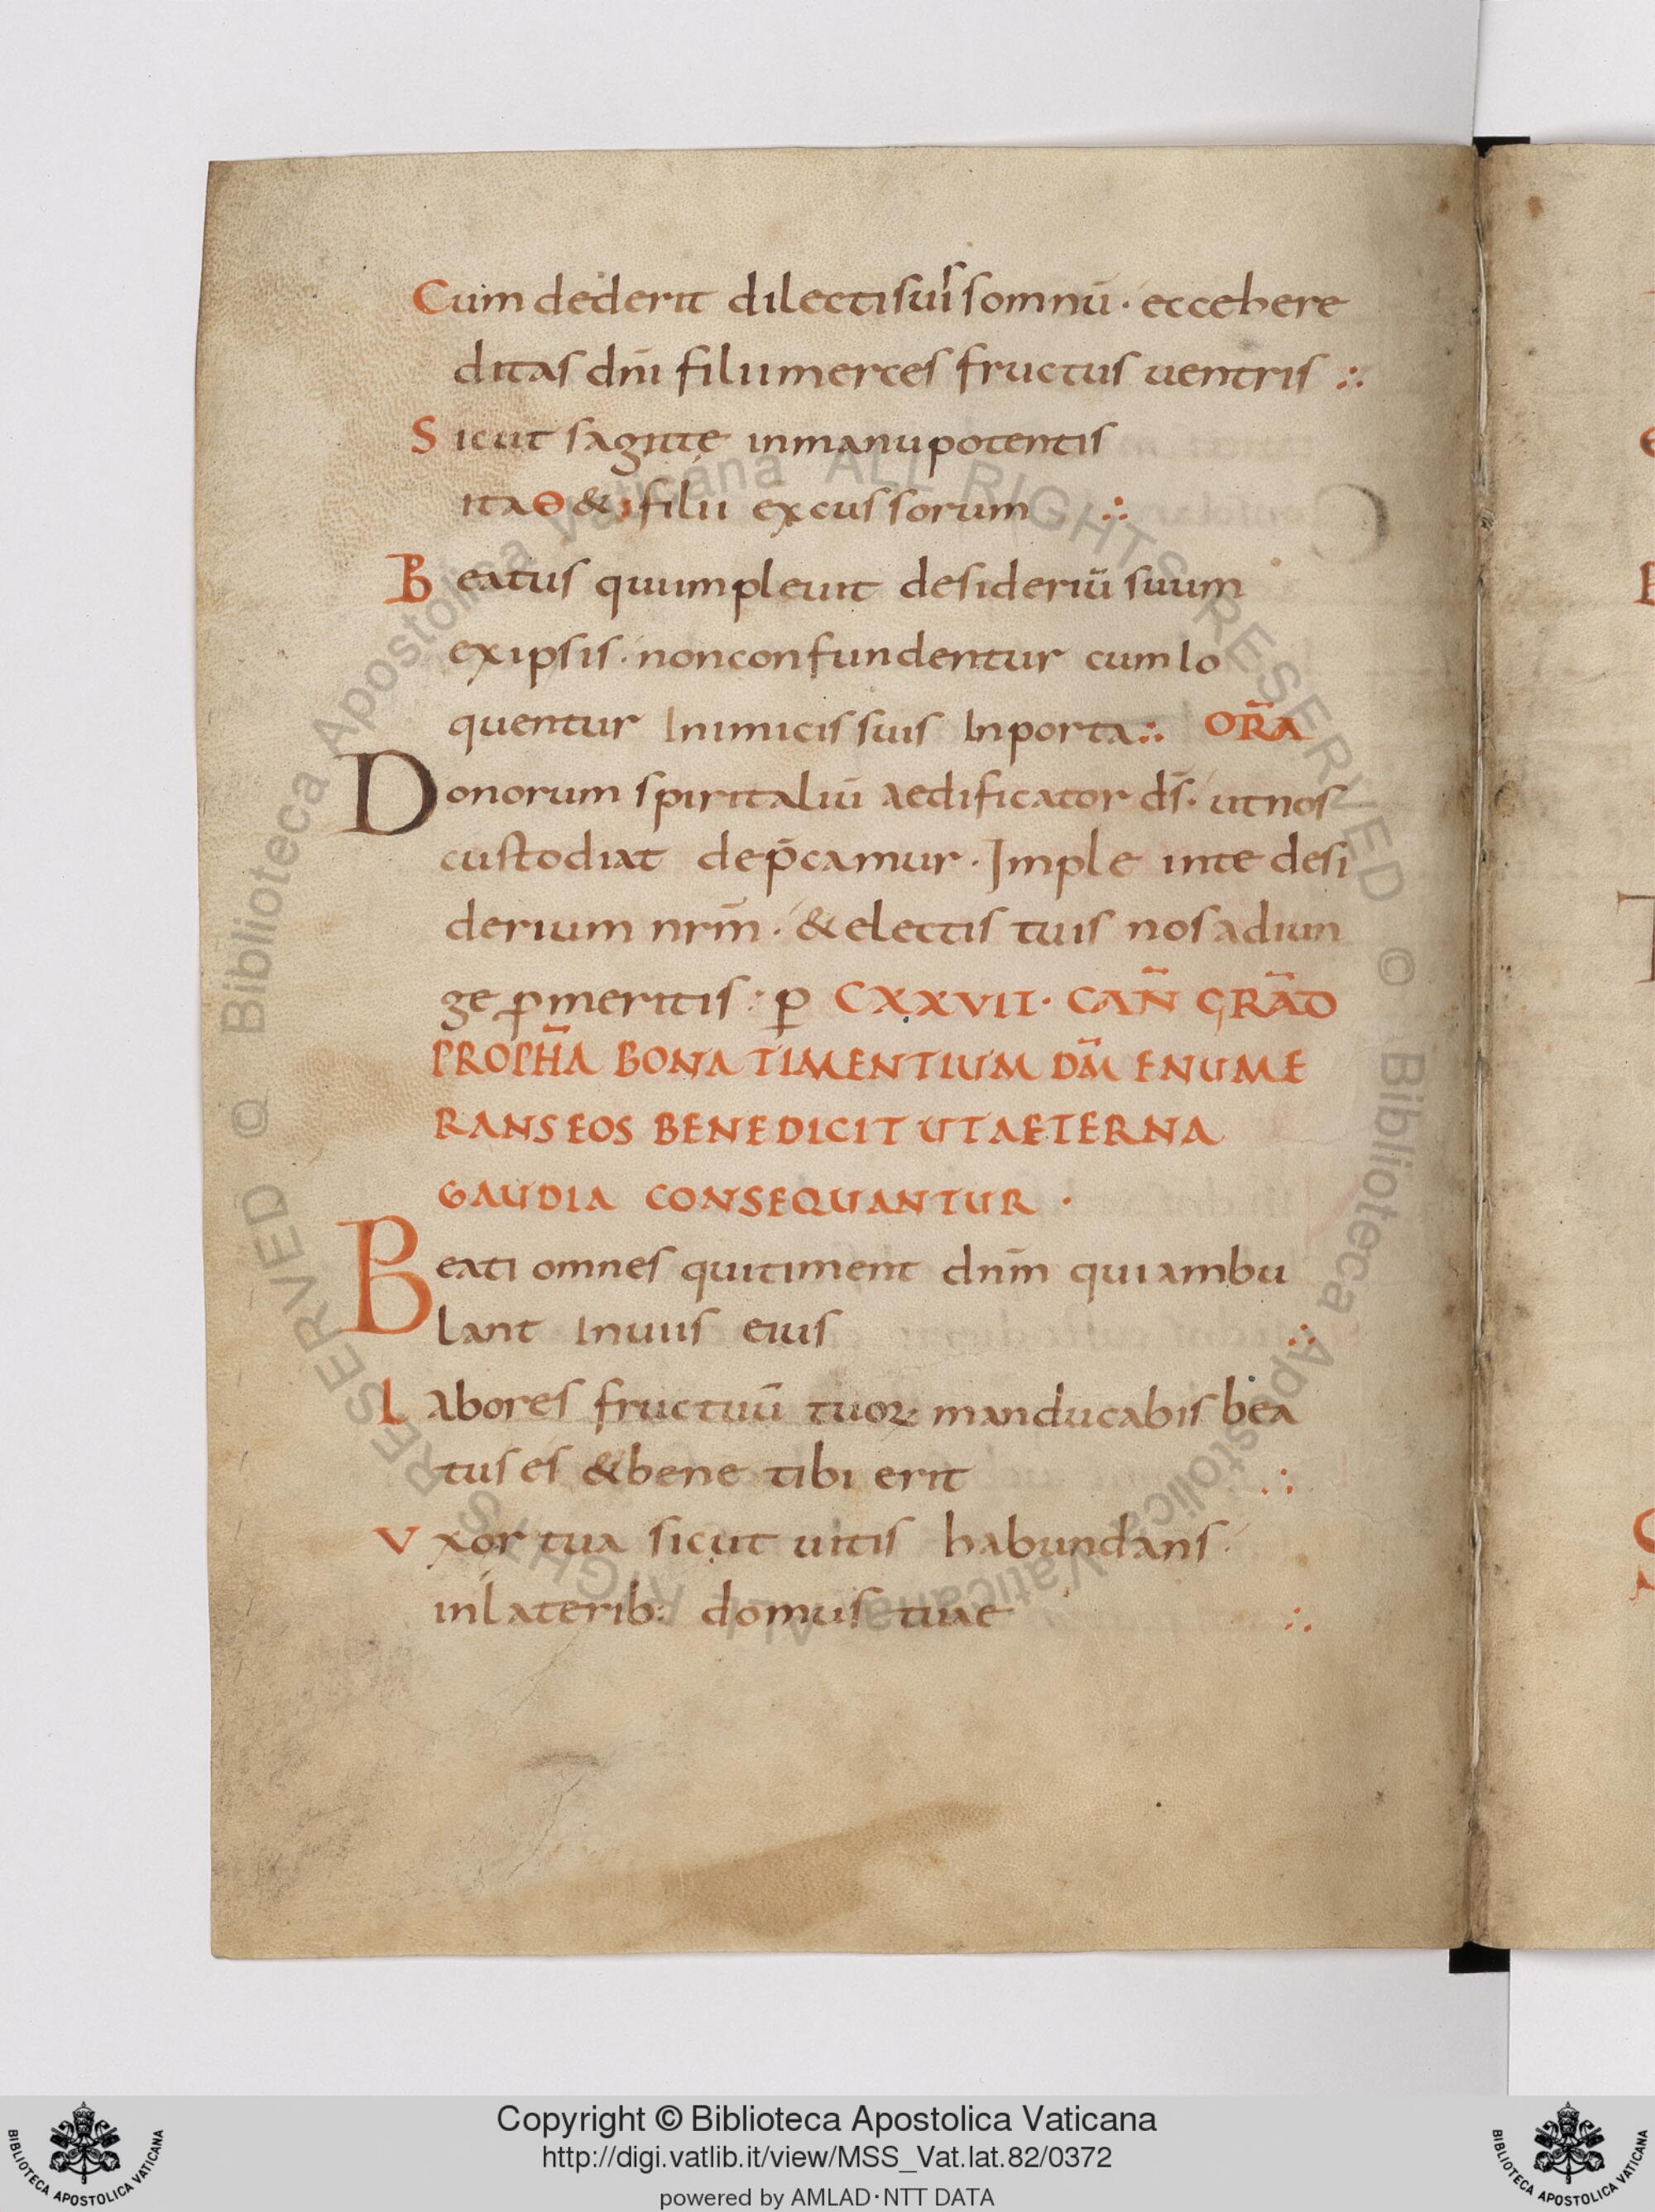 Cum dederit dilectisuis somnū · eccehere
ditas dn̄i filiimerces fructus uentris ∴
Sicut sagittę inmanupotentis
ita Θ &; filii excussorum ∴
Beatus quiimpleuit desideriū suum
exipsis · nonconfundentur cumlo
quentur Inimicis suis Inporta ∴ OR̄A
Donorum spiritaliū aedificator dś · utnos
custodiat dep̄camur · Imple inte desi
derium nrm̄ · & electis tuis nos adiun
ge ꝑmeritis : ꝑ CXXVII · CAN̄ GRĀD
PROPH̄A BONA TIMENTIUM DM̄ ENUME
RANS EOS BENEDICIT UT AETERNA
GAUDIA CONSEQUANTUR ·
Beati omnes quitiment dnm̄ qui ambu
lant Inuiis eius ∴
Labores fructuū tuoꝝ manducabis bea
tus es & bene tibi erit ∴
Vxor tua sicut uitis habundans ·
inlaterib: domus tuae ∴
© Biblioteca Apostolica Vaticana ALL RIGHTS RESERVED © Biblioteca Apostolica Vaticana ALL RIGHTS RESERVED
Copyright © Biblioteca Apostolica Vaticana
http://digi.vatlib.it/view/MSS_Vat.lat.82/0372
powered by AMLAD·NTT DATA
BIBLIOTECA APOSTOLICA VATICANA
BIBLIOTECA APOSTOLICA VATICANA